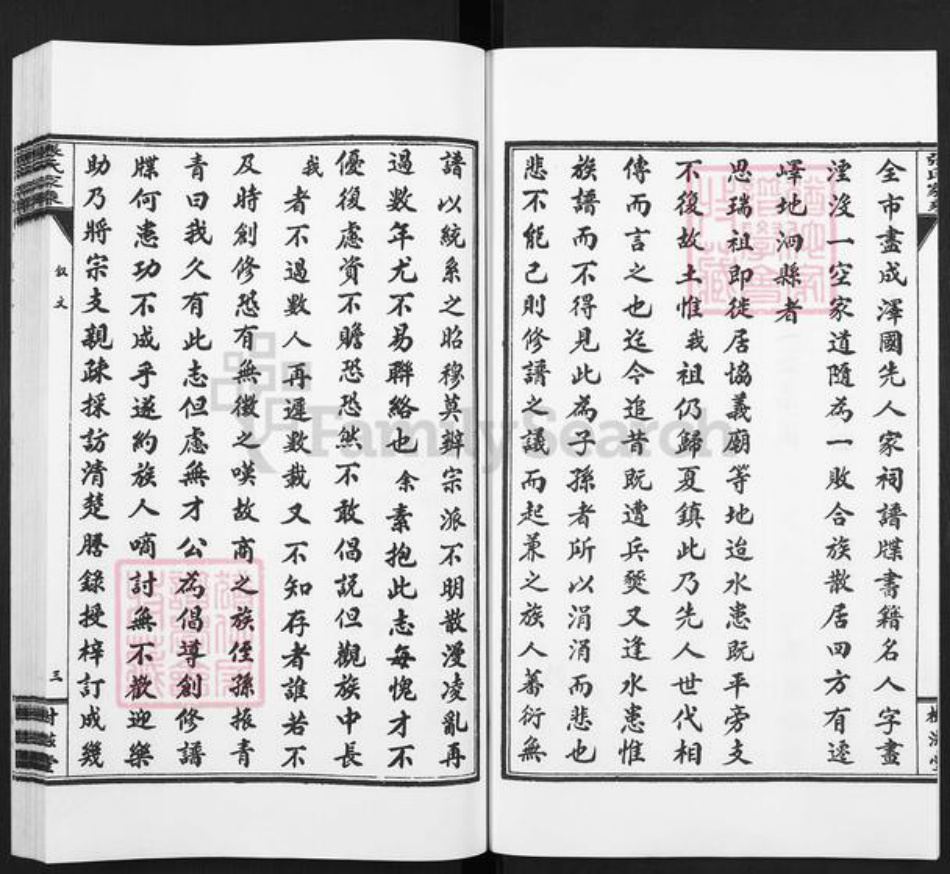 全市盡成澤國先人家祠譜牒書籍名人字畫
湮沒一空家道隨為一敗合族散居四方有逺
嶧地泂縣者
思瑞祖即徙居協義廟等地迨水患既平旁支
不復故土惟我祖仍歸夏鎮此乃先人世代相
傳而言之也迄今追昔既遭兵燹又逢水患惟
族譜而不得見此為子孫者所以涓涓而悲也
悲不能已則修譜之議而起兼之族人蕃衍無
譜以統系之昭穆莫辨宗派不明散漫凌亂再
過數年尤不易聯絡也余素抱此志每愧才不
優復慮資不贍恐恐然不敢倡説但觀族中長
我者不過數人再遲數載又不知存者誰若不
及時創修恐有無徵之嘆故商之族侄孫振青
青曰我久有此志但慮無才公為倡導創修譜
牒何患功不成乎遂約族人啇討無不歡迎樂
助乃將宗支親疎採訪清楚謄錄授梓訂成幾
敍文
三
FamilySearch